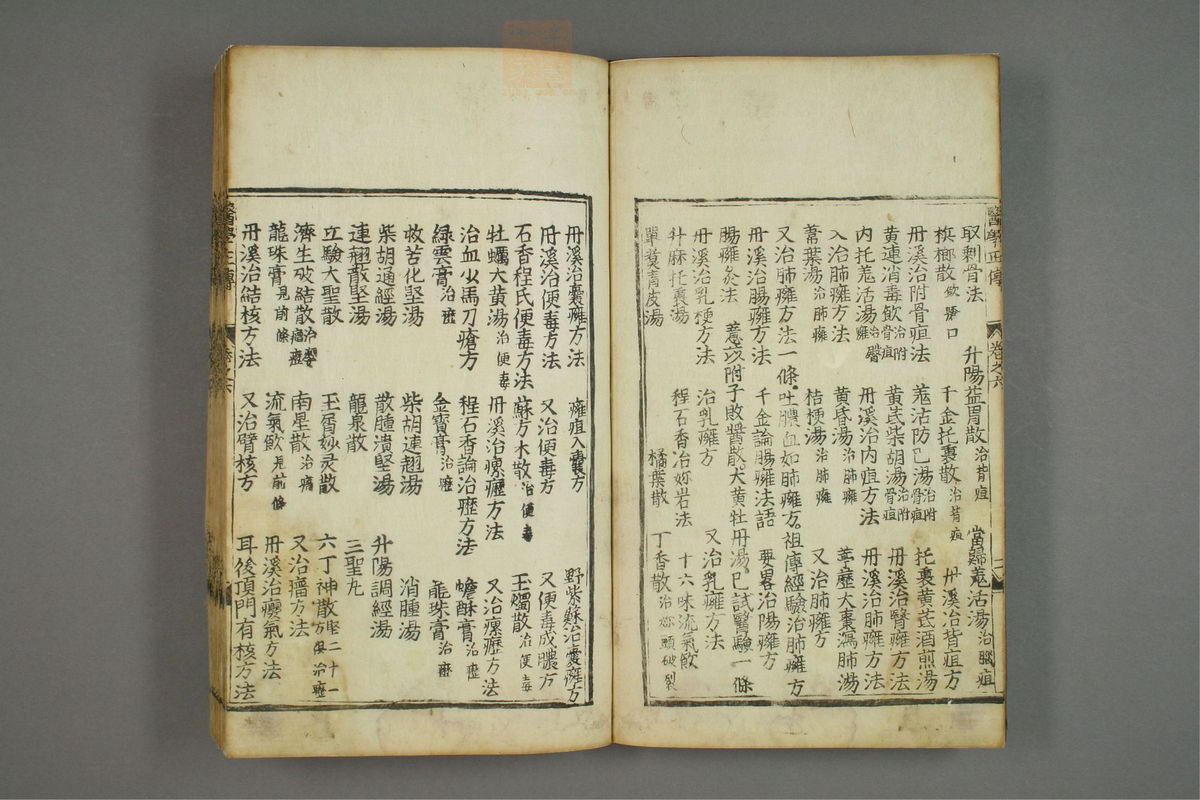 醫學正傳 卷之六
取刺骨法 升陽益胃散治背疽 當歸羗活湯治腦疽
檳榔散歛瘡口 千金托裏散治背疽 丹溪治背疽方
丹溪治附骨疽法 羗活防巳湯治附骨疽 托裏黃芪酒煎湯
黃連消毒飮治附骨疽 黃芪柴胡湯治附骨疽 丹溪治腎癰方法
内托羗活湯治臀癰 丹溪治内疽方法 丹溪治肺癰方法
入治肺癰方法 黃昏湯治肺癰 葶藶大棗瀉肺湯
葦葉湯治肺癰 桔梗湯治肺癰 又治肺癰方
又治肺癰方法一條 吐膿血如肺癰方 祖傳經驗治肺癰方
丹溪治腸癰方法 千金論腸癰法語 要畧治腸癰方
腸癰灸法 薏苡附子敗醬散 大黃牡丹湯 已試醫驗一條
丹溪治乳梗方法 治乳癰方 又治乳癰方法
升麻托裏湯 程石香治妳岩法 十六味流氣飮
單煑靑皮湯 橘葉散 丁香散治妳頭破裂
丹溪治囊癰方法 癰疽入囊方 野紫蘇治囊癰方
丹溪治便毒方法 又治便毒方 又便毒成膿方
石香程氏便毒方法 蘇方木散治便毒 玉燭散治便毒
牡蠣大黃湯治便毒 丹溪治瘰癧方法 又治瘰癧方法
治血少馬刀瘡方 程石香論治癧方法 蟾酥膏治癧
綠雲膏治癧 金寶膏治癧 龍珠膏治癧
救苦化堅湯 柴胡連翹湯 消腫湯
柴胡通經湯 散腫潰堅湯 升陽調經湯
連翹散堅湯 龍泉散 三聖丸
立驗大聖散 玉屑妙灵散 六丁神散
濟生破結散治癭瘤 南星散治瘤 又治瘤方法
龍珠膏見前條 流氣飮見前條 丹溪治癭氣方法
丹溪治結核方法 又治臂核方 耳後頂門有核方法
醫學正傳 卷之六